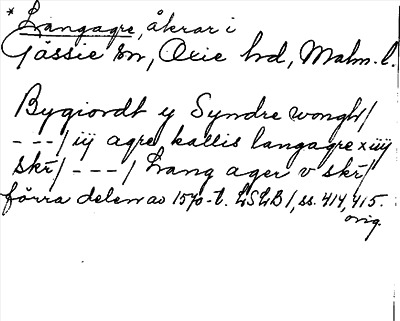 * Langagre, åkrar i
Gässie sn, Oxie hd, Malm. l.
Bygiordt y Syndre wongh/
---/ iij agre kallis langagre x iiij
skr/ ---/ Lang ager v skr/
förra delen av 1570-t. LSLB 1, ss. 414, 415.
orig.